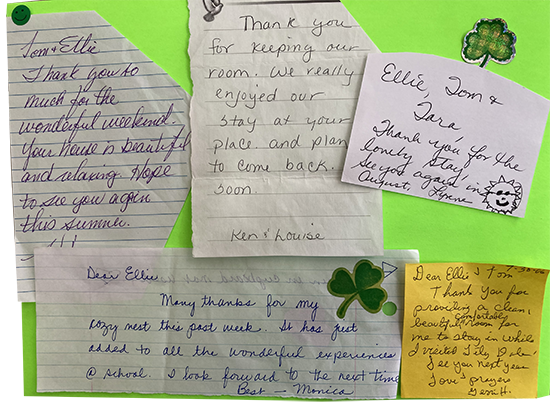 Tom & Ellie
Thank you to
much for the
wonderful weekend.
Your house is beautiful
and relaxing Hope
to see you again
this summer.
Thank you
for keeping our
room. We really
enjoyed our
stay at your
place. and plan
to come back.
soon.
Ken & Louise
Ellie, Tom &
Tara
Thank you for the
lovely stay!
See you again in
August, Lynne
Dear Ellie
Many thanks for my
cozy nest this past week. It has just
added to all the wonderful experiences
@ school. I look forward to the next time
Best – Monica
Dear Ellie & Tom
Thank you for
providing a clean,
comfortable
beautiful room for
me to stay in while
I visited Lily Dale!
See you next year
Love & prayers